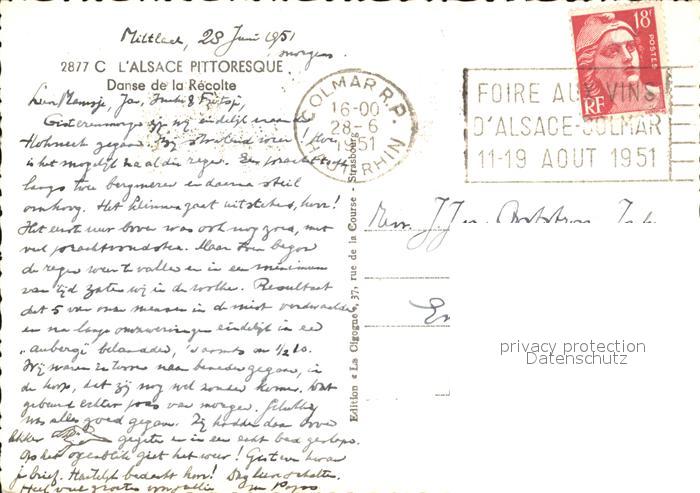 Mittlach, 28 Juni 1951
morgens.
2877 C L'ALSACE PITTORESQUE
Danse de la Récolte
Lieve Mamsje, Jan,
Gisterenmorgen zijn wij eindelijk naar de
Hohneck gegaan. Bij stralend weer! Hoe
is het mogelijk na al die regen. Een prachttocht
langs twee bergmeren en daarna steil
omhoog. Het klimmen gaat uitstekend, hoor!
Het eerste uur boven was ook nog goed, met
veel prachtrondsten. Maar toen begon
de regen weer te vallen en in een minimum
van tijd zaten wij in de wolken. Resultaat
dat 5 van onze mensen in de mist verdwaalden
en na lange omzwervingen eindelijk in een
"auberge" belandden, 's avonds om 1/2 10.
Wij waren ze toren naar beneden gegaan, in
de hoop, dat zij nog wel zouden komen. Dat
gebeurde echter pas van morgen. Gelukkig
was alles goed gegaan. Zij hadden daar boven
lekker gegeten en in een echt bed geslapen.
Op het ogenblik giet het weer! Gisteren kwam
je brief. Hartelijk bedankt hoor! Dag lieve schatten.
Heel veel groeten van jullie
COLMAR R.P.
16-00
28-6
1951
HAUT-RHIN
18F
POSTES
RF
FOIRE AUX VINS
D'ALSACE-COLMAR
11-19 AOUT 1951
Edition « La Cigogne », 37, rue de la Course - Strasbourg
Mevr. J. Jan
privacy protection
Datenschutz